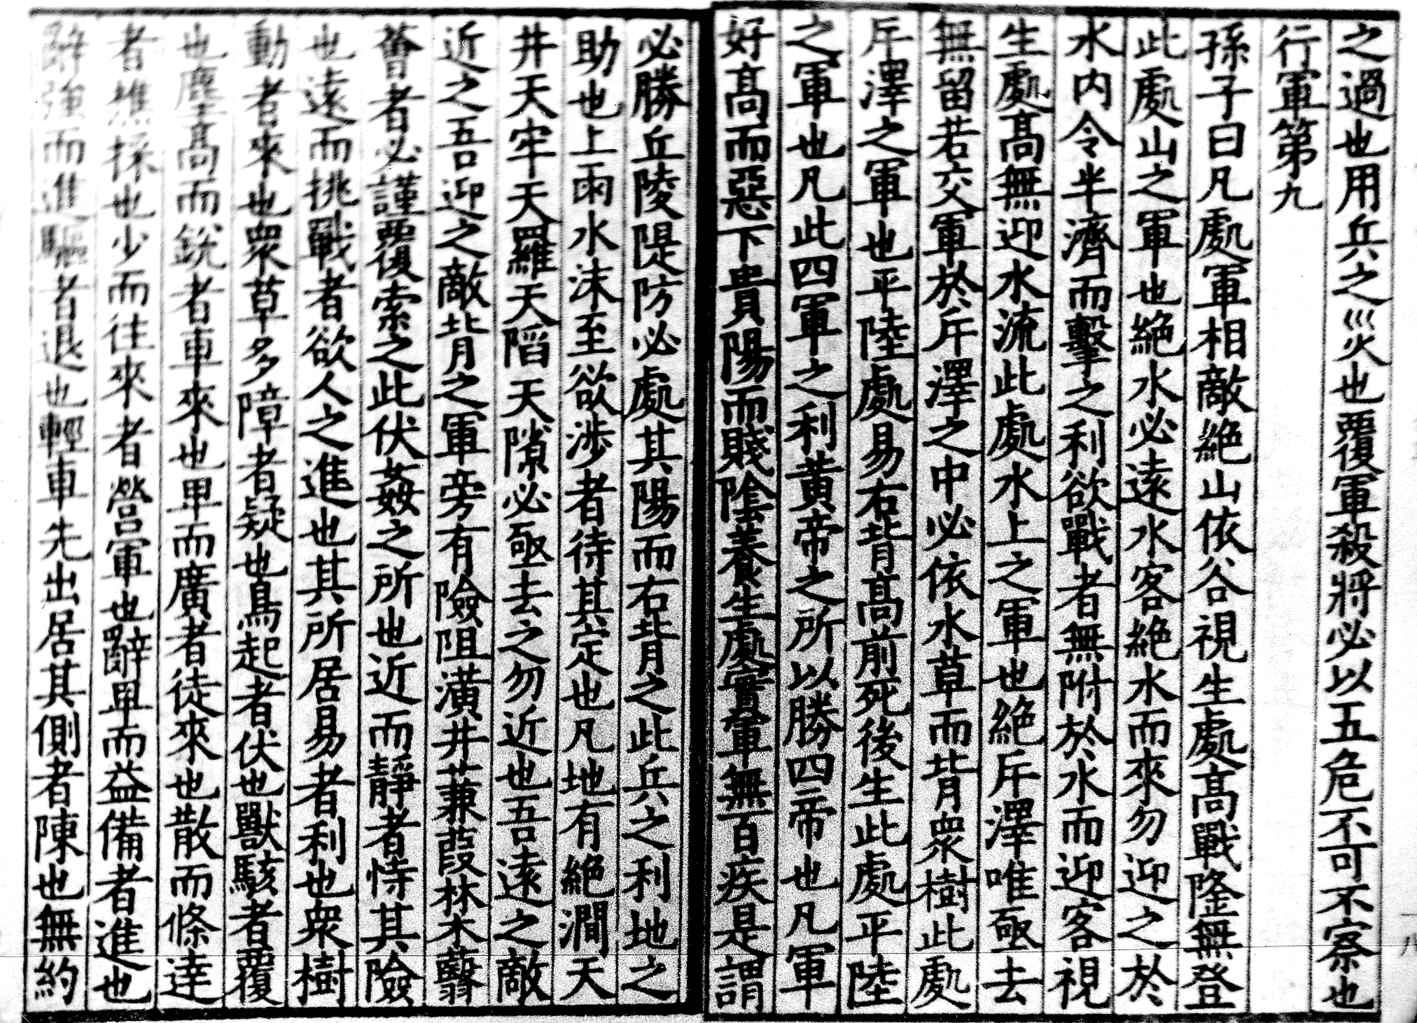 之過也用兵之災也覆軍殺將必以五危不可不察也
行軍第九
孫子曰凡處軍相敵絶山依谷視生處高戰隆無登
此處山之軍也絶水必遠水客絶水而來勿迎之於
水内令半濟而擊之利欲戰者無附於水而迎客視
生處高無迎水流此處水上之軍也絶斥澤唯亟去
無留若交軍於斥澤之中必依水草而背衆樹此處
斥澤之軍也平陸處易右背高前死後生此處平陸
之軍也凡此四軍之利黄帝之所以勝四帝也凡軍
好高而惡下貴陽而賤陰養生處實軍無百疾是謂
必勝丘陵隄防必處其陽而右背之此兵之利地之
助也上雨水沫至欲涉者待其定也凡地有絶澗天
井天牢天羅天陷天隙必亟去之勿近也吾遠之敵
近之吾迎之敵背之軍旁有險阻潢井蒹葭林木蘙
薈者必謹覆索之此伏姦之所也近而靜者恃其險
也遠而挑戰者欲人之進也其所居易者利也衆樹
動者來也衆草多障者疑也鳥起者伏也獸駭者覆
也塵高而銳者車來也卑而廣者徒來也散而條達
者樵採也少而往來者營軍也辭卑而益備者進也
辭強而進驅者退也輕車先出居其側者陳也無約